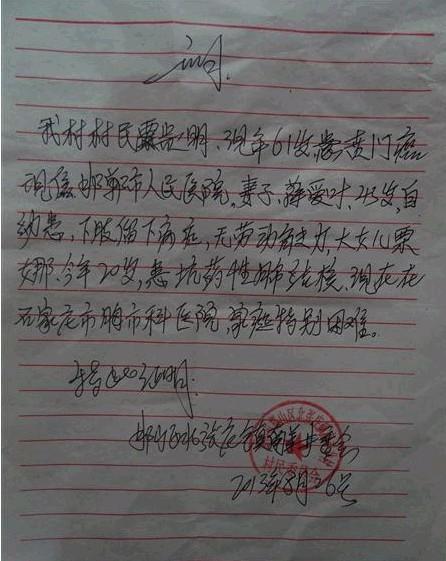 证明
我村村民栗贵明、现年61岁患贲门癌
现住邯郸市人民医院。妻子，薛爱叶，43岁，自
幼患，下肢留下病症，无劳动能力，大女儿栗
娜，今年20岁，患抗药性肺结核、现在在
石家庄市胸市科医院，家庭特别困难。
特此证明
村委会
2013年8月26号
村民委员会